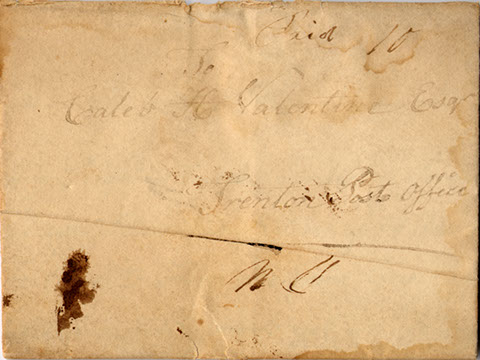 Paid 10
To
Caleb H Valentine Esqr
Trenton Post Office
N C